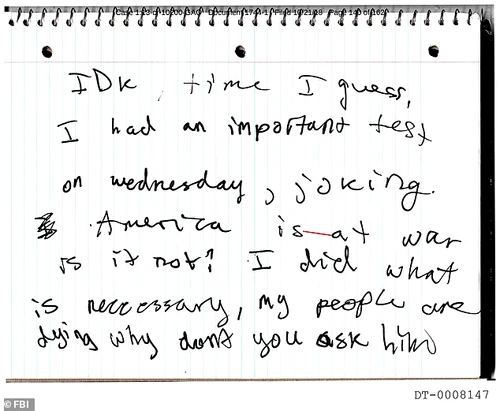 Document 174-1 Filed 10/21/18 Page 140 of 162
IDK, time I guess,
I had an important test
on wednesday, joking.
America is at war
is it not? I did what
is neccessary, my people are
dying why dont you ask him
DT-0008147
© FBI